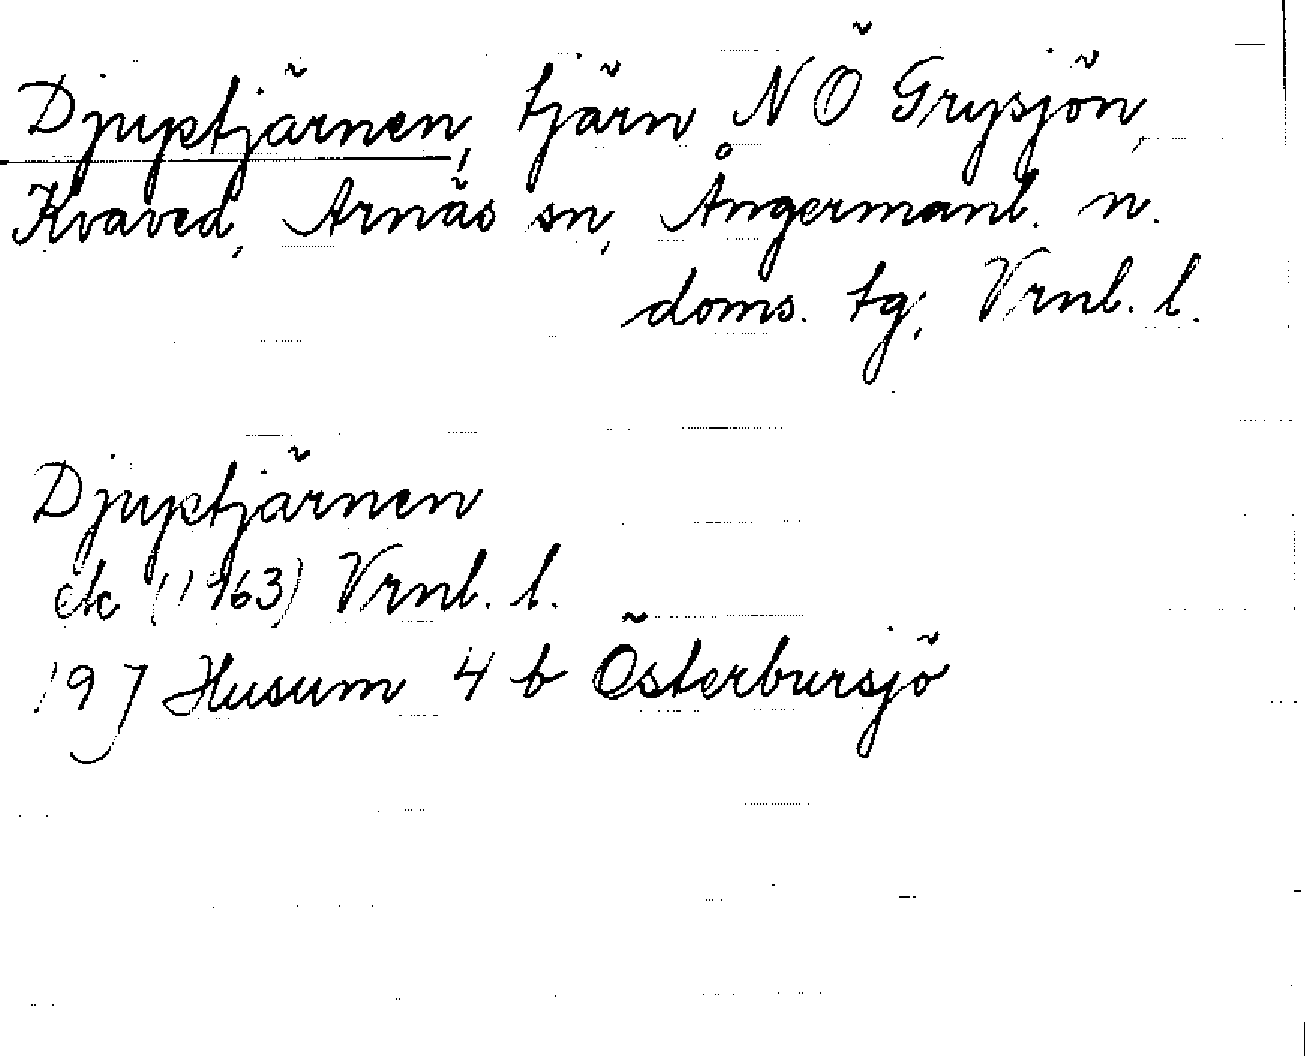 Djuptjärnen, tjärn NÖ Grysjön,
Kvaved, Arnäs sn, Ångermanl. n.
doms. tg, Vrnl. l.
Djuptjärnen
ek (1963) Vrnl. l.
19J Husum 4 b Österbursjö